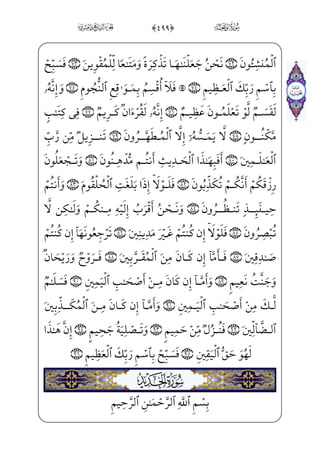 ٱلْمُنشِـُٔونَ ۝٧٢ نَحْنُ جَعَلْنَـٰهَا تَذْكِرَةً وَمَتَـٰعًا لِّلْمُقْوِينَ ۝٧٣ فَسَبِّحْ
بِٱسْمِ رَبِّكَ ٱلْعَظِيمِ ۝٧٤ ۞ فَلَآ أُقْسِمُ بِمَوَٰقِعِ ٱلنُّجُومِ ۝٧٥ وَإِنَّهُۥ
لَقَسَمٌ لَّوْ تَعْلَمُونَ عَظِيمٌ ۝٧٦ إِنَّهُۥ لَقُرْءَانٌ كَرِيمٌ ۝٧٧ فِى كِتَـٰبٍ
مَّكْنُونٍ ۝٧٨ لَّا يَمَسُّهُۥٓ إِلَّا ٱلْمُطَهَّرُونَ ۝٧٩ تَنزِيلٌ مِّن رَّبِّ
ٱلْعَـٰلَمِينَ ۝٨٠ أَفَبِهَـٰذَا ٱلْحَدِيثِ أَنتُم مُّدْهِنُونَ ۝٨١ وَتَجْعَلُونَ
رِزْقَكُمْ أَنَّكُمْ تُكَذِّبُونَ ۝٨٢ فَلَوْلَآ إِذَا بَلَغَتِ ٱلْحُلْقُومَ ۝٨٣ وَأَنتُمْ
حِينَئِذٍ تَنظُرُونَ ۝٨٤ وَنَحْنُ أَقْرَبُ إِلَيْهِ مِنكُمْ وَلَـٰكِن لَّا
تُبْصِرُونَ ۝٨٥ فَلَوْلَآ إِن كُنتُمْ غَيْرَ مَدِينِينَ ۝٨٦ تَرْجِعُونَهَآ إِن كُنتُمْ
صَـٰدِقِينَ ۝٨٧ فَأَمَّآ إِن كَانَ مِنَ ٱلْمُقَرَّبِينَ ۝٨٨ فَرَوْحٌ وَرَيْحَانٌ
وَجَنَّتُ نَعِيمٍ ۝٨٩ وَأَمَّآ إِن كَانَ مِنْ أَصْحَـٰبِ ٱلْيَمِينِ ۝٩٠ فَسَلَـٰمٌ
لَّكَ مِنْ أَصْحَـٰبِ ٱلْيَمِينِ ۝٩١ وَأَمَّآ إِن كَانَ مِنَ ٱلْمُكَذِّبِينَ
ٱلضَّآلِّينَ ۝٩٢ فَنُزُلٌ مِّنْ حَمِيمٍ ۝٩٣ وَتَصْلِيَةُ جَحِيمٍ ۝٩٤ إِنَّ هَـٰذَا
لَهُوَ حَقُّ ٱلْيَقِينِ ۝٩٥ فَسَبِّحْ بِٱسْمِ رَبِّكَ ٱلْعَظِيمِ ۝٩٦
سُورَةُ ٱلْحَدِيدِ
بِسْمِ ٱللَّهِ ٱلرَّحْمَـٰنِ ٱلرَّحِيمِ